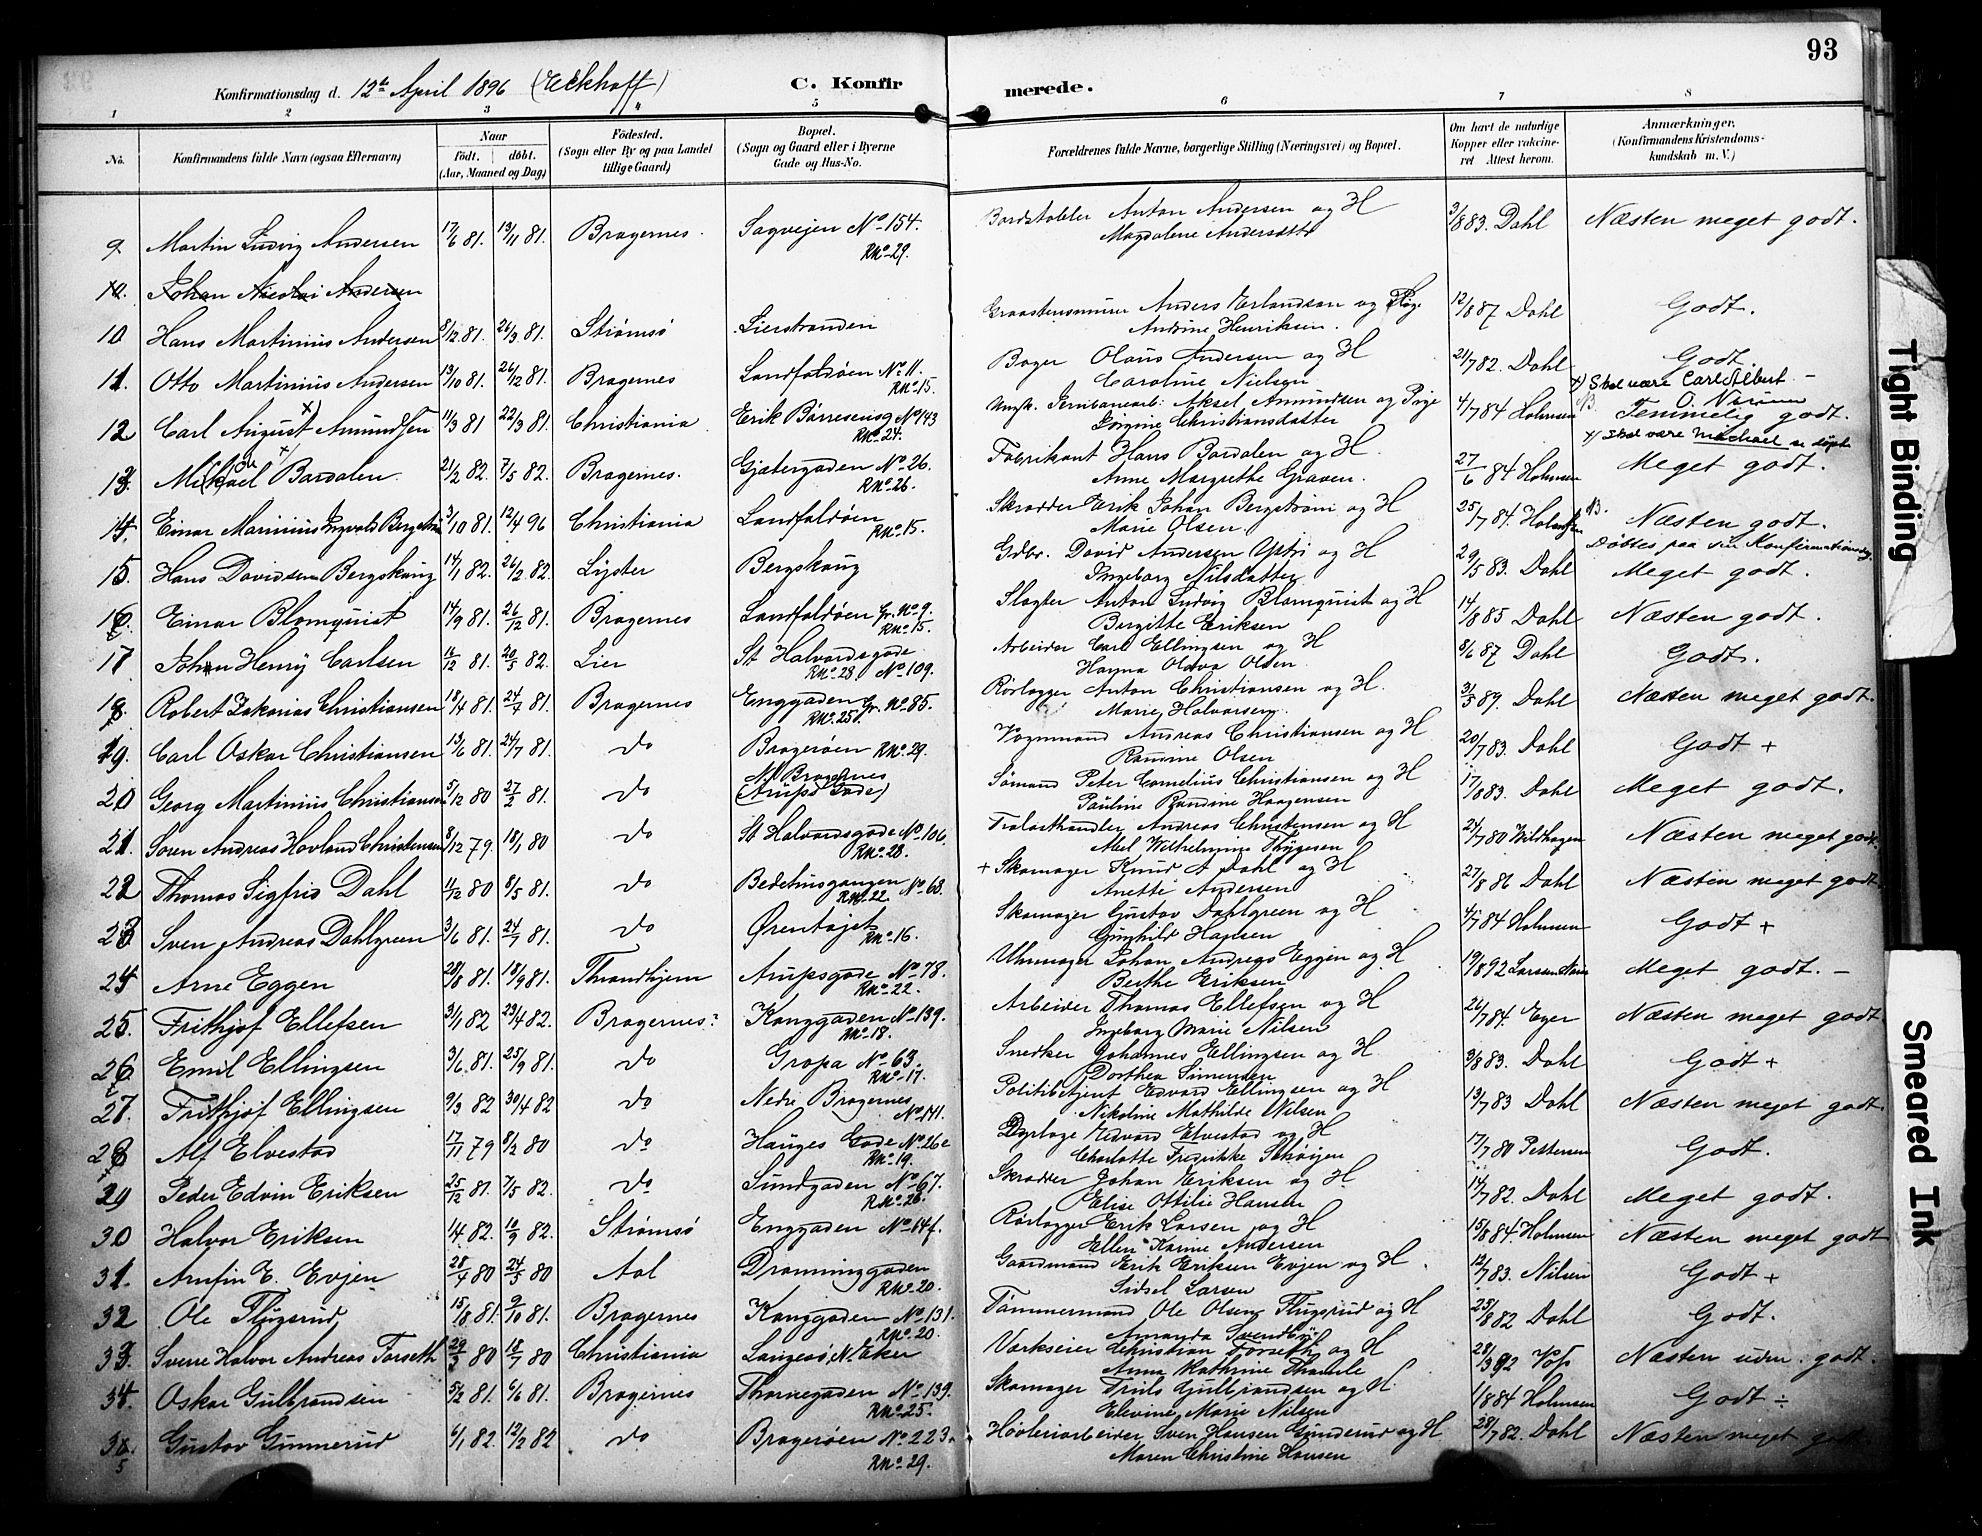 93
Konfirmationsdag d. 12te April 1896 (Eckhoff) C. Konfirmerede.
1 2 3 4 5 6 7 8
No. Konfirmandens fulde Navn (ogsaa Efternavn) Naar født. døbt. (Aar, Maaned og Dag) Fødested. (Sogn eller By og paa Landet tillige Gaard) Bopæl. (Sogn og Gaard eller i Byerne Gade og Hus-No. Forældrenes fulde Navne, borgerlige Stilling (Næringsvei) og Bopæl. Om havt de naturlige Kopper eller vakcineret Attest herom. Anmærkninger. (Konfirmandens Kristendomskundskab m. V.)
9. Martin Ludvig Andersen 17/6 81. 13/11 81. Bragernes. Sagvejen No 154. RNo 29. Anton Andersen og H Magdalene 3/8 83. Dahl Næsten meget godt.
10. Johan Nicolai Andersen
10 Hans Martinius Andersen 8/12 81. 26/3 81. Strømsø Lierstranden Anders Erlandsen og Andrine Henriksen. 12/8 87 Dahl Godt.
11. Otto Martinius Andersen 13/10 81. 26/12 81. Bragernes Landfaldøen No 11. RNo 15. Bager Olaus Andersen og H Caroline Nielsen 21/7 82. Dahl Godt.
x) Skal være Carl Albert.
12 Carl August x) Amundsen 11/3 81 22/3 81. Christiania Erik Børresensg No 143 RNo 24. Aksel Amundsen og Pige Jørgine Christiansdatter 4/7 84 Holmsen Temmelig godt.
x) Skal være Michael
13. Mikael x Bardalen 21/2 82. 7/5 82. Bragernes. Gjætergaden No 26. RNo 26. Fabrikant Hans Bardalen og H. Anne Margrethe Graven. 27/6 84 Holmsen Meget godt.
14. Einar Marinius Ingvald Bergstrøm 3/10 81. 12/4 96 Christiania Landfaldøen RNo 15. Skrædder Erik Johan Bergstrøm og H Marie Olsen. 25/7 84. Holmsen Næsten godt. Døbtes paa sin Konfirmationsdag.
15. Hans Davidsen Bergskaug 14/1 82. 26/2 82. Lyster Bergskaug Gdbr. David Andersen Ystri og H Ingeborg Nilsdatter 29/5 83. Dahl Meget godt.
16. Einar Blomquist 14/9 81. 26/12 81. Bragernes Landfaldøen Gr. No 9. RNo 15. Slagter Anton Ludvig Blomquist og H Birgitte Eriksen 14/8 85 Dahl Næsten godt.
17 Johan Henry Carlsen 16/12 81. 20/5 82. Lier St Halvordsgade RNo 28 No 109. Arbeider Carl Ellingsen og H Hanna Olava Olsen. 8/6 87 Dahl Godt.
18. Robert Zakarias Christiansen 18/4 81. 24/7 81. Bragernes Enggaden Gr. No 85. RNo 25. Rørlægger Anton Christiansen og H. Marie Halvorsen. 31/5 89. Dahl Næsten meget godt.
19. Carl Oskar Christiansen 13/6 81. 24/7 81. do Bragerøen RNo 29. Vognmand Andreas Christiansen og H Ramine Olsen 20/7 83. Dahl Godt +
20 Georg Martinius Christiansen 5/12 80 27/2 81. do N. Bragernes (Arups Gade) Sømand Peter Cornelius Christiansen og H Pauline Randine Haagensen 17/8 83. Dahl Meget godt.
21. Søren Andreas Hovland Christensen 8/12 79. 18/1 80 do St Halvordsgade No 106. RNo 28. Trælasthandler Andreas Christensen og H Abel Wilhelmine Thygesen 24/7 80 Wildhagen Næsten meget godt.
22 Thomas Sigfrid Dahl 11/12 80 8/5 81. do Bedehusgangen No 63. RNo 22 + Skomager Knud A Dahl og H Anette Andersen 27/8 86 Dahl Næsten meget godt
23 Sven Andreas Dahlgreen 3/6 81. 24/7 81. do Ørentøjet RNo 16. Skomager Gustav Dahlgreen og H Gunhild Hansen 4/7 84 Holmsen Godt +
24 Arne Eggen 28/8 81. 18/9 81. Throndhjem Arupsgade No 78. RNo 22. Uhrmager Johan Andreas Eggen og H Berthe Eriksen 19/8 92 Larsen Næss Meget godt. -
25. Frithjof Ellefsen 31/1 82 23/4 82. Bragernes Konggaden No 139. RNo 18. Arbeider Thomas Ellefsen og H Ingeborg Marie Nilsen 26/7 84. Eger Næsten meget godt
26 Emil Ellingsen 3/6 81. 25/9 81. do Gropa No 63. RNo 17. Snedker Johannes Ellingsen og H Dorthea Simensen 3/8 83. Dahl Godt +
27. Frithjof Ellingsen 9/3 82 30/4 82 do Nedre Bragernes No 141. Politibetjent Edvard Ellingsen og H Nikoline Mathilde Nilsen 13/7 83 Dahl Næsten meget godt.
28 Alf Elvestad 17/11 79 8/2 80 do Hauges Gade No 26c RNo 19. Dyrlæge Edvard Elvestad og H Charlotte Fredrikke Schøigen 17/7 80 Pettersen Godt.
29 Peder Edvin Eriksen 25/12 81. 7/5 82. do Sundgaden No 67. RNo 26. Skrædder Johan Eriksen og H Elise Ottilie Hansen 14/7 82. Dahl Meget godt.
30 Halvor Eriksen 14 82. 10/9 82. Strømsø Enggaden No 64f. Rørlægger Erik Larsen og H Ellen Karine Andersen 15/8 84. Holmsen Næsten meget godt
31. Arnfin E. Evjen 28/4 80 24/5 80 Aal Dronninggaden RNo 20. Gaardmand Erik Eriksen Evjen og H Sidsel Larsen 12/7 83. Nilsen Godt +
32 Ole Flugsrud 15/8 81. 9/10 81. Bragernes Konggaden No 131. RNo 20. Tømmermand Ole Olsen Flugsrud og H Amanda Svendsby 25/8 82 Dahl Godt.
33. Sverre Halvor Andreas Forseth 29/3 80 18/7 80 Christiania Langesø, N. Eker Værkseier Christian Forseth og H Anna Kathrine Thamle 28/3 92 Voss Næsten uden. godt.
34. Oskar Gulbrandsen 5/2 81. 6/6 81. Bragernes Thornegaden No 139. RNo 25. Skomager Truls Gulbrandsen og H Elevine Marie Nilsen 1/8 84 Holmsen Godt ÷
35. Gustav Gunnerud 6/1 82. 12/2 82 do Bragerøen No 223. RNo 29. Høvleriarbeider Sven Hansen Gunderud og H Maren Christine Hansen 28/7 82. Dahl Næsten meget godt.
Tight Binding
Smeared Ink